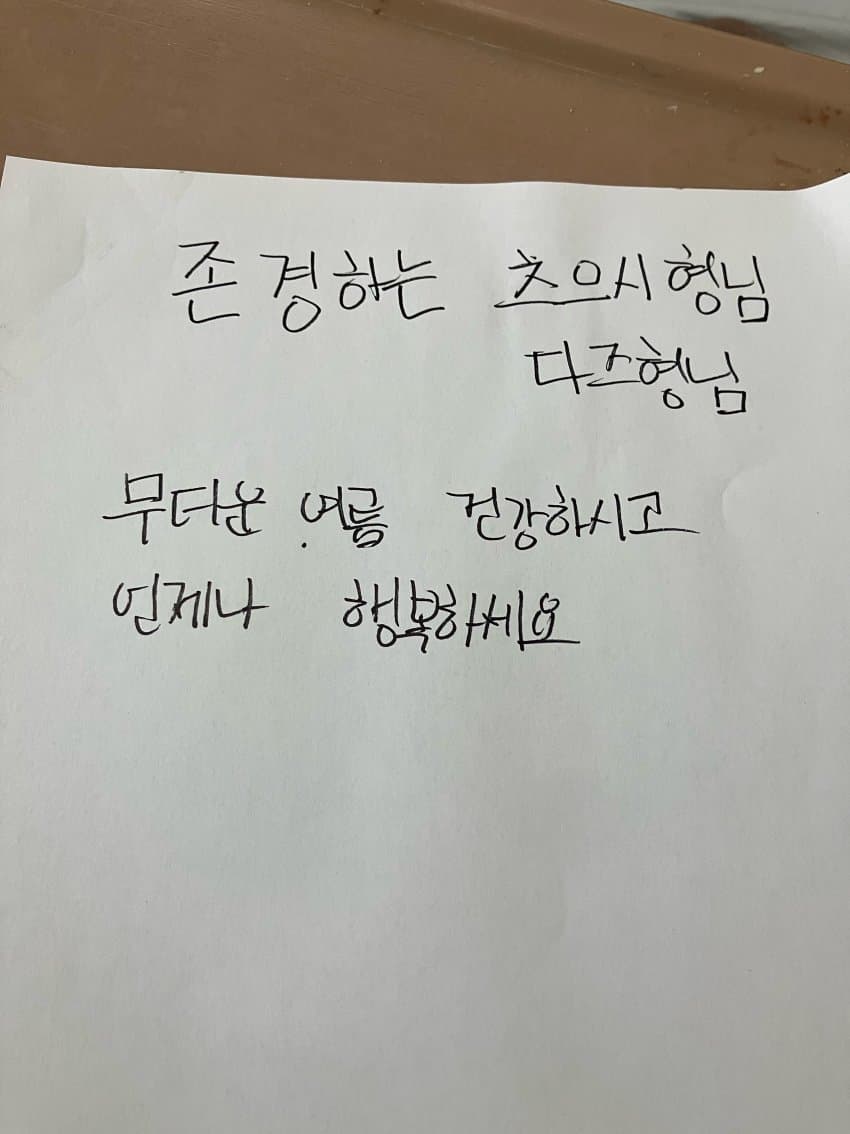 존경하는 츠으시형님
다즈형님
무더운 여름 건강하시고
언제나 행복하세요